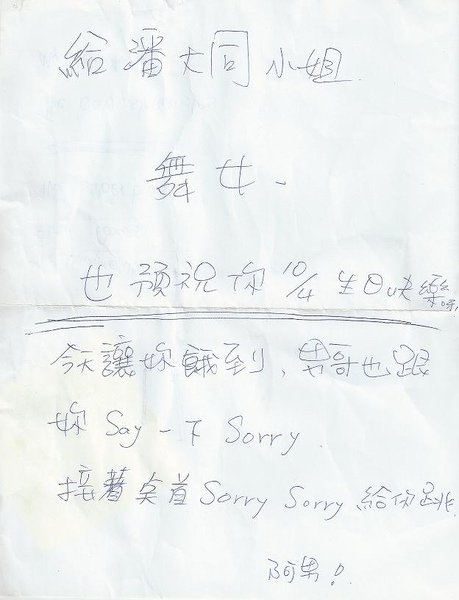 給潘大同小姐
舞女-
也預祝你 10/4 生日快樂啊,
今天讓妳餓到，男哥也跟
妳 Say 一下 Sorry.
接著桌首 Sorry Sorry 給你跳
阿男!